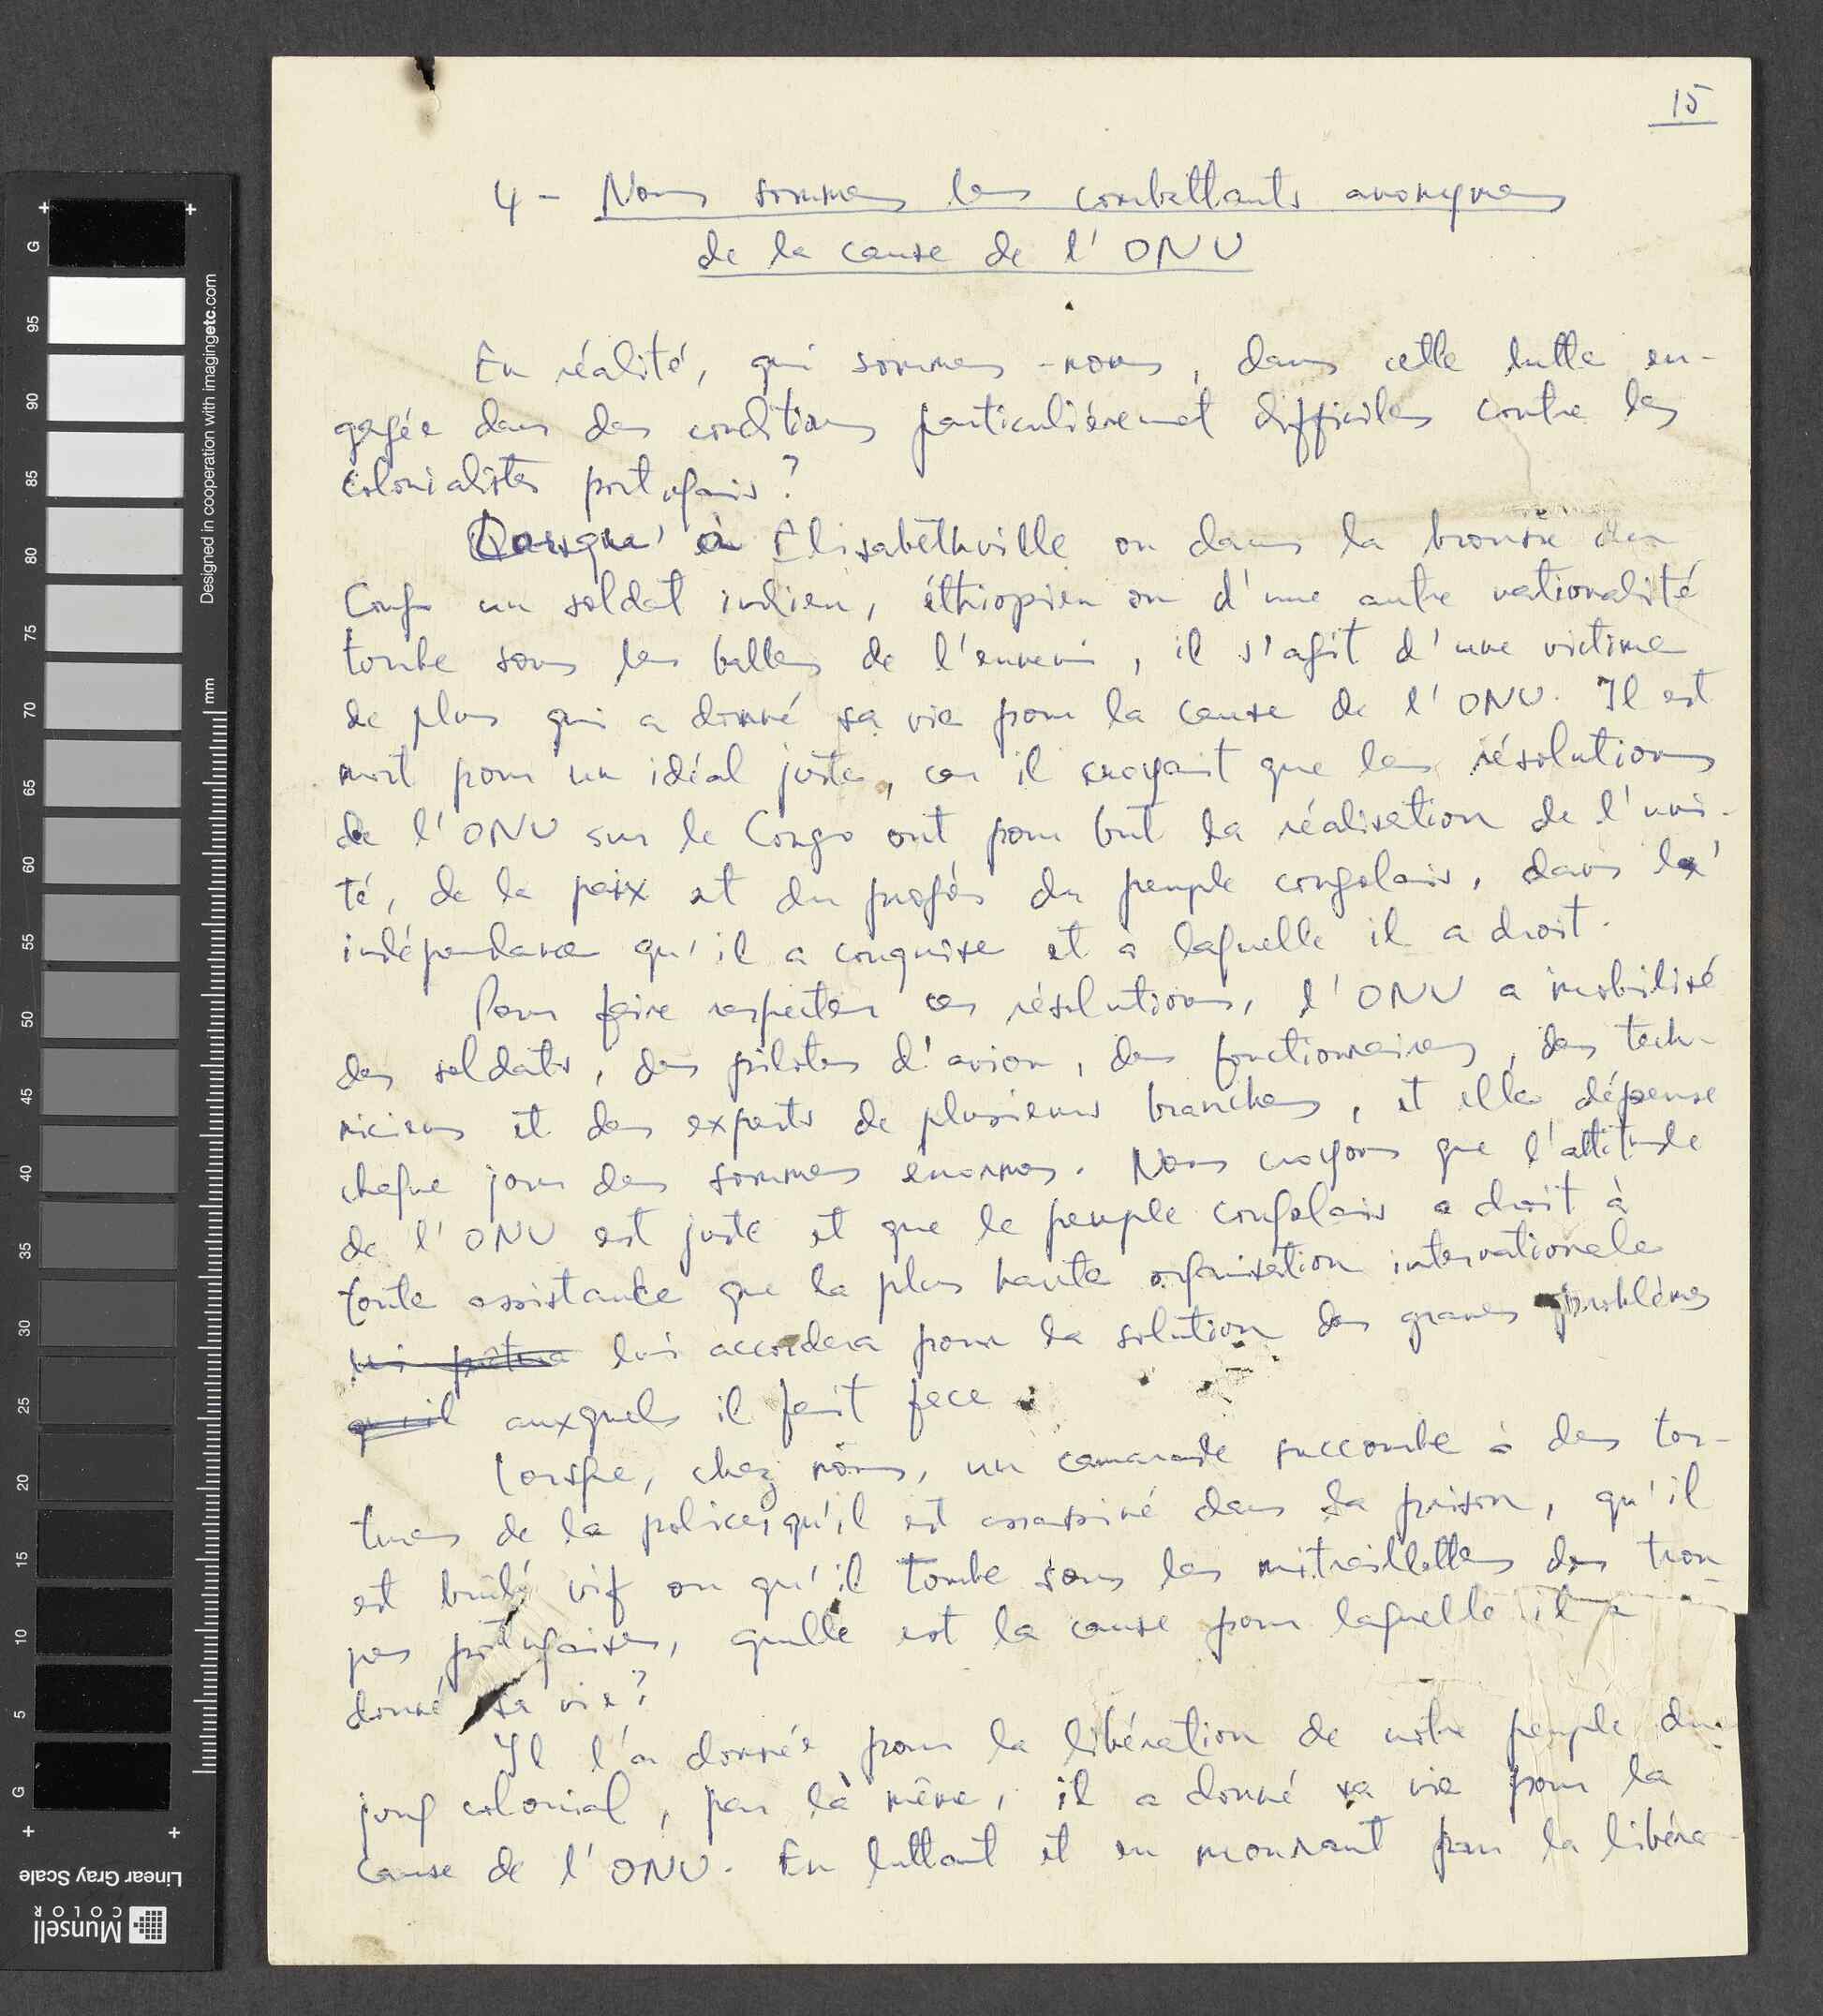 15
4 - Nous sommes les combattants anonymes
de la cause de l'ONU
En réalité, qui sommes-nous, dans cette lutte en-
gagée dans des conditions particulièrement difficiles contre les
colonialistes portugais?
à Elisabethville ou dans la brousse du
Congo un soldat indien, éthiopien ou d'une autre nationalité
tombe sous les balles de l'ennemi, il s'agit d'une victime
de plus qui a donné sa vie pour la cause de l'ONU. Il est
mort pour un idéal juste, car il croyait que les résolutions
de l'ONU sur le Congo ont pour but la réalisation de l'uni-
té, de la paix et du progrès du peuple congolais, dans l'
indépendance qu'il a conquise et a laquelle il a droit.
Pour faire respecter ces résolutions, l'ONU a mobilisé
des soldats, des pilotes d'avion, des fonctionnaires, des tech-
niciens et des experts de plusieurs branches, et elle dépense
chaque jour des sommes énormes. Nous croyons que l'attitude
de l'ONU est juste et que le peuple congolais a droit à
toute assistance que la plus haute organisation internationale
lui accordera pour la solution des graves problèmes
qu'il auxquels il fait face.
Lorsque, chez nous, un camarade succombe à des tor-
tures de la police, qu'il est assassiné dans la prison, qu'il
est brûlé vif ou qu'il tombe sous les mitraillettes des trou-
pes portugaises, quelle est la cause pour laquelle il a
donné sa vie?
Il l'a donnée pour la libération de notre peuple du
joug colonial, par là même, il a donné sa vie pour la
cause de l'ONU. En luttant et en mourant pour la libéra-
Designed in cooperation with imagingetc.com
mm
G
95
90
85
80
75
70
65
60
55
50
45
40
35
30
25
20
15
10
5
G
Linear Gray Scale
Munsell
COLOR